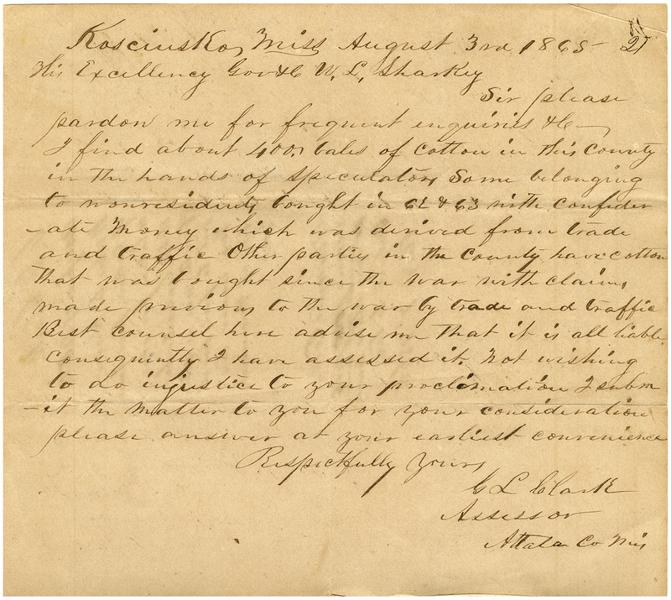 Kosciusko, Miss, August 3rd, 1865
His Excellency Gov &C W. L. Sharkey
Sir please
pardon me for frequent enquiries &C—
I find about 400, bales of cotton in this County
in the hands of speculators, Some belonging
to nonresidents, bought in 62 & 63 with confeder
-ate money which was derived from trade
and traffic Other parties in the County have cotton
that was bought since the war with claims,
made previous to the war by trade and traffic
Best counsel here advise me that it is all liable,
Consequently I have assessed it, Not wishing
to do injustice to your proclimation I subm
-it the matter to you for your consideration
please answer at your earliest convenience
Respectfully yours,
G L Clark
Assessor
Attala Co Mis